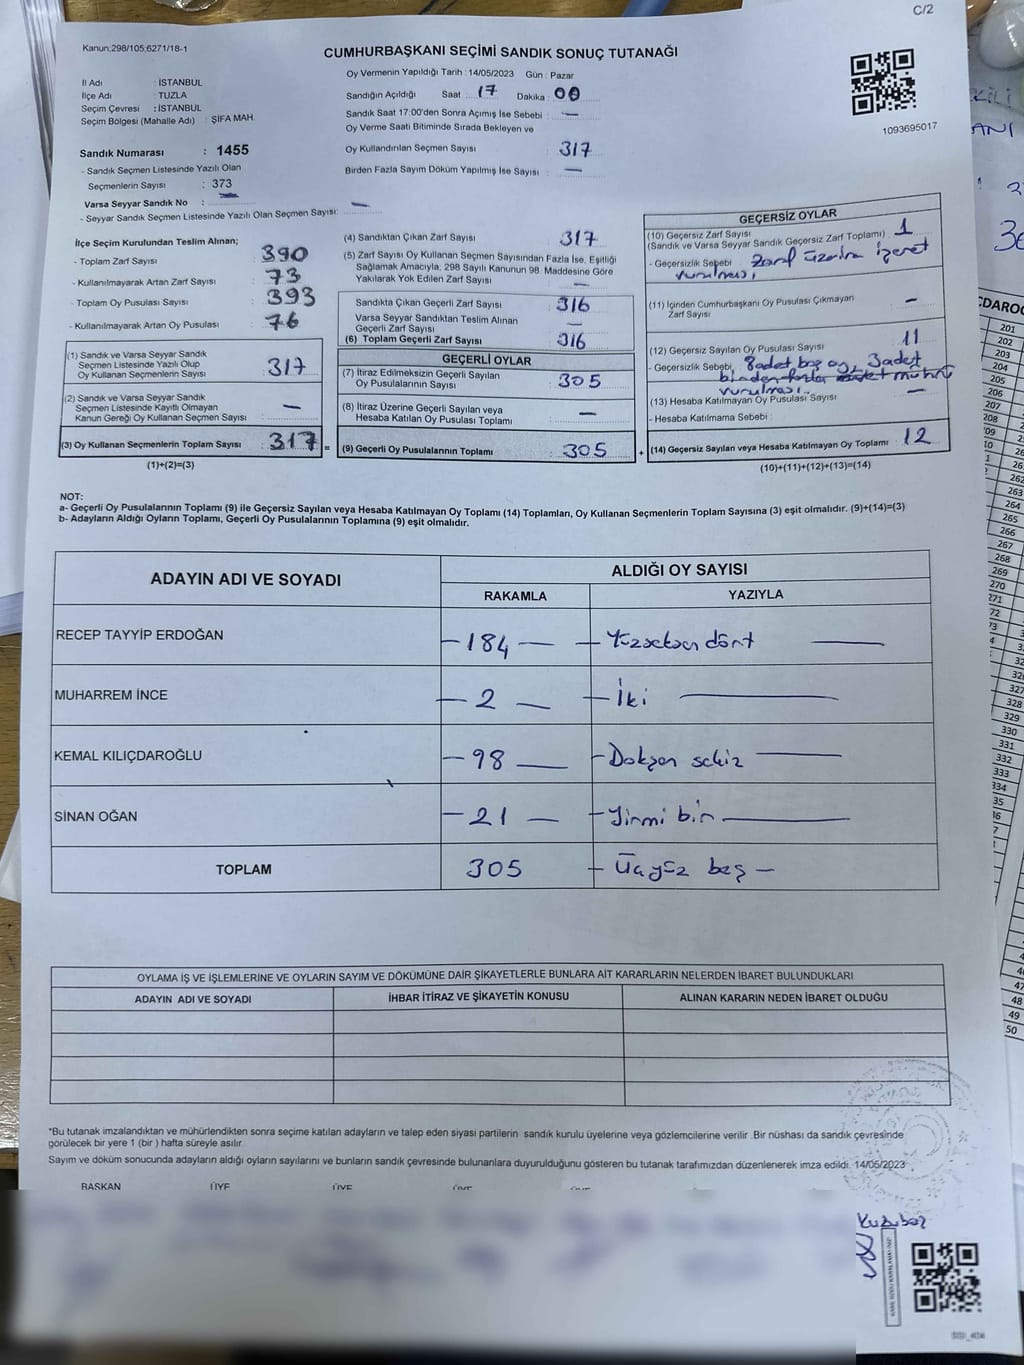 C/2
Kanun:298/105;6271/18-1
CUMHURBAŞKANI SEÇİMİ SANDIK SONUÇ TUTANAĞI
İl Adı : İSTANBUL
İlçe Adı : TUZLA
Seçim Çevresi : İSTANBUL
Seçim Bölgesi (Mahalle Adı) : ŞİFA MAH.
Sandık Numarası : 1455
- Sandık Seçmen Listesinde Yazılı Olan
Seçmenlerin Sayısı : 373
Varsa Seyyar Sandık No : —
- Seyyar Sandık Seçmen Listesinde Yazılı Olan Seçmen Sayısı: —
Oy Vermenin Yapıldığı Tarih : 14/05/2023 Gün : Pazar
Sandığın Açıldığı Saat : 17 Dakika : 00
Sandık Saat 17:00'den Sonra Açımış İse Sebebi : —
Oy Verme Saati Bitiminde Sırada Bekleyen ve
Oy Kullandırılan Seçmen Sayısı : 317
Birden Fazla Sayım Döküm Yapılmış İse Sayısı : —
1093695017
İlçe Seçim Kurulundan Teslim Alınan;
- Toplam Zarf Sayısı : 390
- Kullanılmayarak Artan Zarf Sayısı : 73
- Toplam Oy Pusulası Sayısı : 393
- Kullanılmayarak Artan Oy Pusulası : 76
(1) Sandık ve Varsa Seyyar Sandık
Seçmen Listesinde Yazılı Olup
Oy Kullanan Seçmenlerin Sayısı : 317
(2) Sandık ve Varsa Seyyar Sandık
Seçmen Listesinde Kayıtlı Olmayan
Kanun Gereği Oy Kullanan Seçmen Sayısı : —
(3) Oy Kullanan Seçmenlerin Toplam Sayısı : 317 =
(1)+(2)=(3)
(4) Sandıktan Çıkan Zarf Sayısı : 317
(5) Zarf Sayısı Oy Kullanan Seçmen Sayısından Fazla İse, Eşitliği
Sağlamak Amacıyla, 298 Sayılı Kanunun 98. Maddesine Göre
Yakılarak Yok Edilen Zarf Sayısı : —
Sandıkta Çıkan Geçerli Zarf Sayısı : 316
Varsa Seyyar Sandıktan Teslim Alınan
Geçerli Zarf Sayısı : —
(6) Toplam Geçerli Zarf Sayısı : 316
GEÇERLİ OYLAR
(7) İtiraz Edilmeksizin Geçerli Sayılan
Oy Pusulalarının Sayısı : 305
(8) İtiraz Üzerine Geçerli Sayılan veya
Hesaba Katılan Oy Pusulası Toplamı : —
(9) Geçerli Oy Pusulalarının Toplamı : 305 +
GEÇERSİZ OYLAR
(10) Geçersiz Zarf Sayısı : 1
(Sandık ve Varsa Seyyar Sandık Geçersiz Zarf Toplamı)
- Geçersizlik Sebebi : Zarf üzerine işeret
vurulması,
(11) İçinden Cumhurbaşkanı Oy Pusulası Çıkmayan
Zarf Sayısı : —
(12) Geçersiz Sayılan Oy Pusulası Sayısı : 11
- Geçersizlik Sebebi : 8 adet boş oy, 3 adet
birden fazla mühür
vurulması.
(13) Hesaba Katılmayan Oy Pusulası Sayısı : —
- Hesaba Katılmama Sebebi :
(14) Geçersiz Sayılan veya Hesaba Katılmayan Oy Toplamı : 12
(10)+(11)+(12)+(13)=(14)
NOT:
a- Geçerli Oy Pusulalarının Toplamı (9) ile Geçersiz Sayılan veya Hesaba Katılmayan Oy Toplamı (14) Toplamları, Oy Kullanan Seçmenlerin Toplam Sayısına (3) eşit olmalıdır. (9)+(14)=(3)
b- Adayların Aldığı Oyların Toplamı, Geçerli Oy Pusulalarının Toplamına (9) eşit olmalıdır.
ADAYIN ADI VE SOYADI
ALDIĞI OY SAYISI
RAKAMLA YAZIYLA
RECEP TAYYİP ERDOĞAN — 184 — — Yüzseksen dört —
MUHARREM İNCE — 2 — — İki —
KEMAL KILIÇDAROĞLU — 98 — — Doksan sekiz —
SİNAN OĞAN — 21 — — Yirmi bir —
TOPLAM 305 — Üçyüz beş —
OYLAMA İŞ VE İŞLEMLERİNE VE OYLARIN SAYIM VE DÖKÜMÜNE DAİR ŞİKAYETLERLE BUNLARA AİT KARARLARIN NELERDEN İBARET BULUNDUKLARI
ADAYIN ADI VE SOYADI İHBAR İTİRAZ VE ŞİKAYETİN KONUSU ALINAN KARARIN NEDEN İBARET OLDUĞU
*Bu tutanak imzalandıktan ve mühürlendikten sonra seçime katılan adayların ve talep eden siyasi partilerin sandık kurulu üyelerine veya gözlemcilerine verilir .Bir nüshası da sandık çevresinde
görülecek bir yere 1 (bir ) hafta süreyle asılır
Sayım ve döküm sonucunda adayların aldığı oyların sayılarını ve bunların sandık çevresinde bulunanlara duyurulduğunu gösteren bu tutanak tarafımızdan düzenlenerek imza edildi. 14/05/2023
BAŞKAN ÜYE ÜYE ÜYE ÜYE